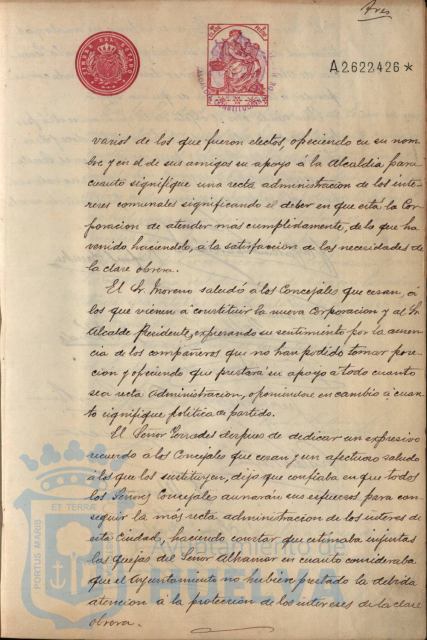 Tres
TIMBRE DEL ESTADO
A2622426*
varios de los que fueron electos, ofreciendo en su nom-
bre y en el de sus amigos su apoyo á la Alcaldía para
cuanto signifique una recta administracion de los inte-
reses comunales significando el deber en que está la Cor-
poracion de atender mas cumplidamente, de lo que ha
venido haciendolo, a la satisfaccion de las necesidades de
la clase obrera.
El Sr. Moreno saludó á los Concejales que cesan, á
los que vienen á constituir la nueva Corporacion y al Sr.
Alcalde Presidente, expresando su sentimiento por la ausen-
cia de los compañeros que no han podido tomar pose-
cion y ofreciendo que prestará su apoyo á todo cuanto
sea recta Administracion, oponiendose en cambio á cuan-
to signifique politica de partido.
El Señor Terrades despues de dedicar un expresivo
recuerdo á los Concejales que cesan y un afectuoso saludo
á los que los sustituyen, dijo que confiaba en que todos
los Señores Concejales aunarán sus esfuerzos para con-
seguir la más recta administracion de los interes de
esta Ciudad, haciendo constar que estimaba injustas
las quejas del Señor Alhamar en cuanto consideraba
que el Ayuntamiento no hubiere prestado la debida
atencion á la proteccion de los intereses de la clase
obrera.
PORTUS MARIS
ET TERRAE
Ayuntamiento de
HUELVA